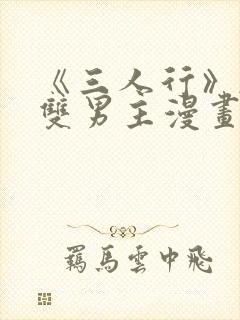 《三人行》
雙男主漫畫
羈馬雲中飛